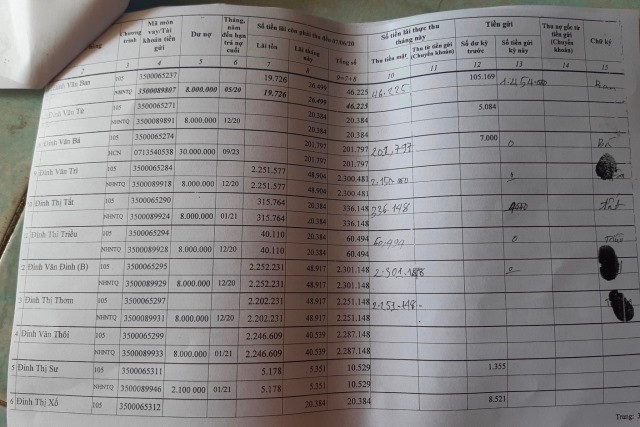 Chương trình Mã món vay/Tài khoản tiền gửi Dư nợ Tháng, năm đến hạn trả nợ cuối Số tiền lãi còn phải thu đến 07/06/20 Số tiền lãi thực thu tháng này Tiền gửi Thu nợ gốc từ tiền gửi (Chuyển khoản) Chữ ký
Lãi tồn Lãi tháng này Tổng số Thu tiền mặt Thu từ tiền gửi (Chuyển khoản) Số dư kỳ trước Số tiền gửi kỳ này
2 3 4 5 6 7 8 9=7+8 10 11 12 13 14 15
Đinh Văn Ban 105 3500065237 19.726 26.499 46.225 46.225 105.169
NHNTQ 3500089807 8.000.000 05/20 19.726 26.499 46.225
Đinh Văn Từ 105 3500065271 20.384 20.384 5.084
NHNTQ 3500089891 8.000.000 12/20 20.384 20.384
Đinh Văn Bá 105 3500065274 201.797 201.797 201,797 7.000 0
HCN 0713540538 30.000.000 09/23 201.797 201.797
Đinh Văn Trí 105 3500065284 2.251.577 48.904 2.300.481
NHNTQ 3500089918 8.000.000 12/20 2.251.577 48.904 2.300.481
Đinh Thị Tất 105 3500065290 315.764 20.384 336.148 336.148
NHNTQ 3500089924 8.000.000 01/21 315.764 20.384 336.148
Đinh Thị Triều 105 3500065294 40.110 20.384 60.494 60.494 0
NHNTQ 3500089928 8.000.000 12/20 40.110 20.384 60.494
2 Đinh Văn Đinh (B) 105 3500065295 2.252.231 48.917 2.301.148 2.301.148
NHNTQ 3500089929 8.000.000 12/20 2.252.231 48.917 2.301.148
3 Đinh Thị Thơm 105 3500065297 2.202.231 48.917 2.251.148
NHNTQ 3500089931 8.000.000 12/20 2.202.231 48.917 2.251.148
4 Đinh Văn Thôi 105 3500065299 2.246.609 40.539 2.287.148
NHNTQ 3500089933 8.000.000 01/21 2.246.609 40.539 2.287.148
5 Đinh Thị Sư 105 3500065311 5.178 5.351 10.529 1.355
NHNTQ 3500089946 2.100.000 01/21 5.178 5.351 10.529
6 Đinh Thị Xô 105 3500065312 20.384 20.384 8.521
Trang: